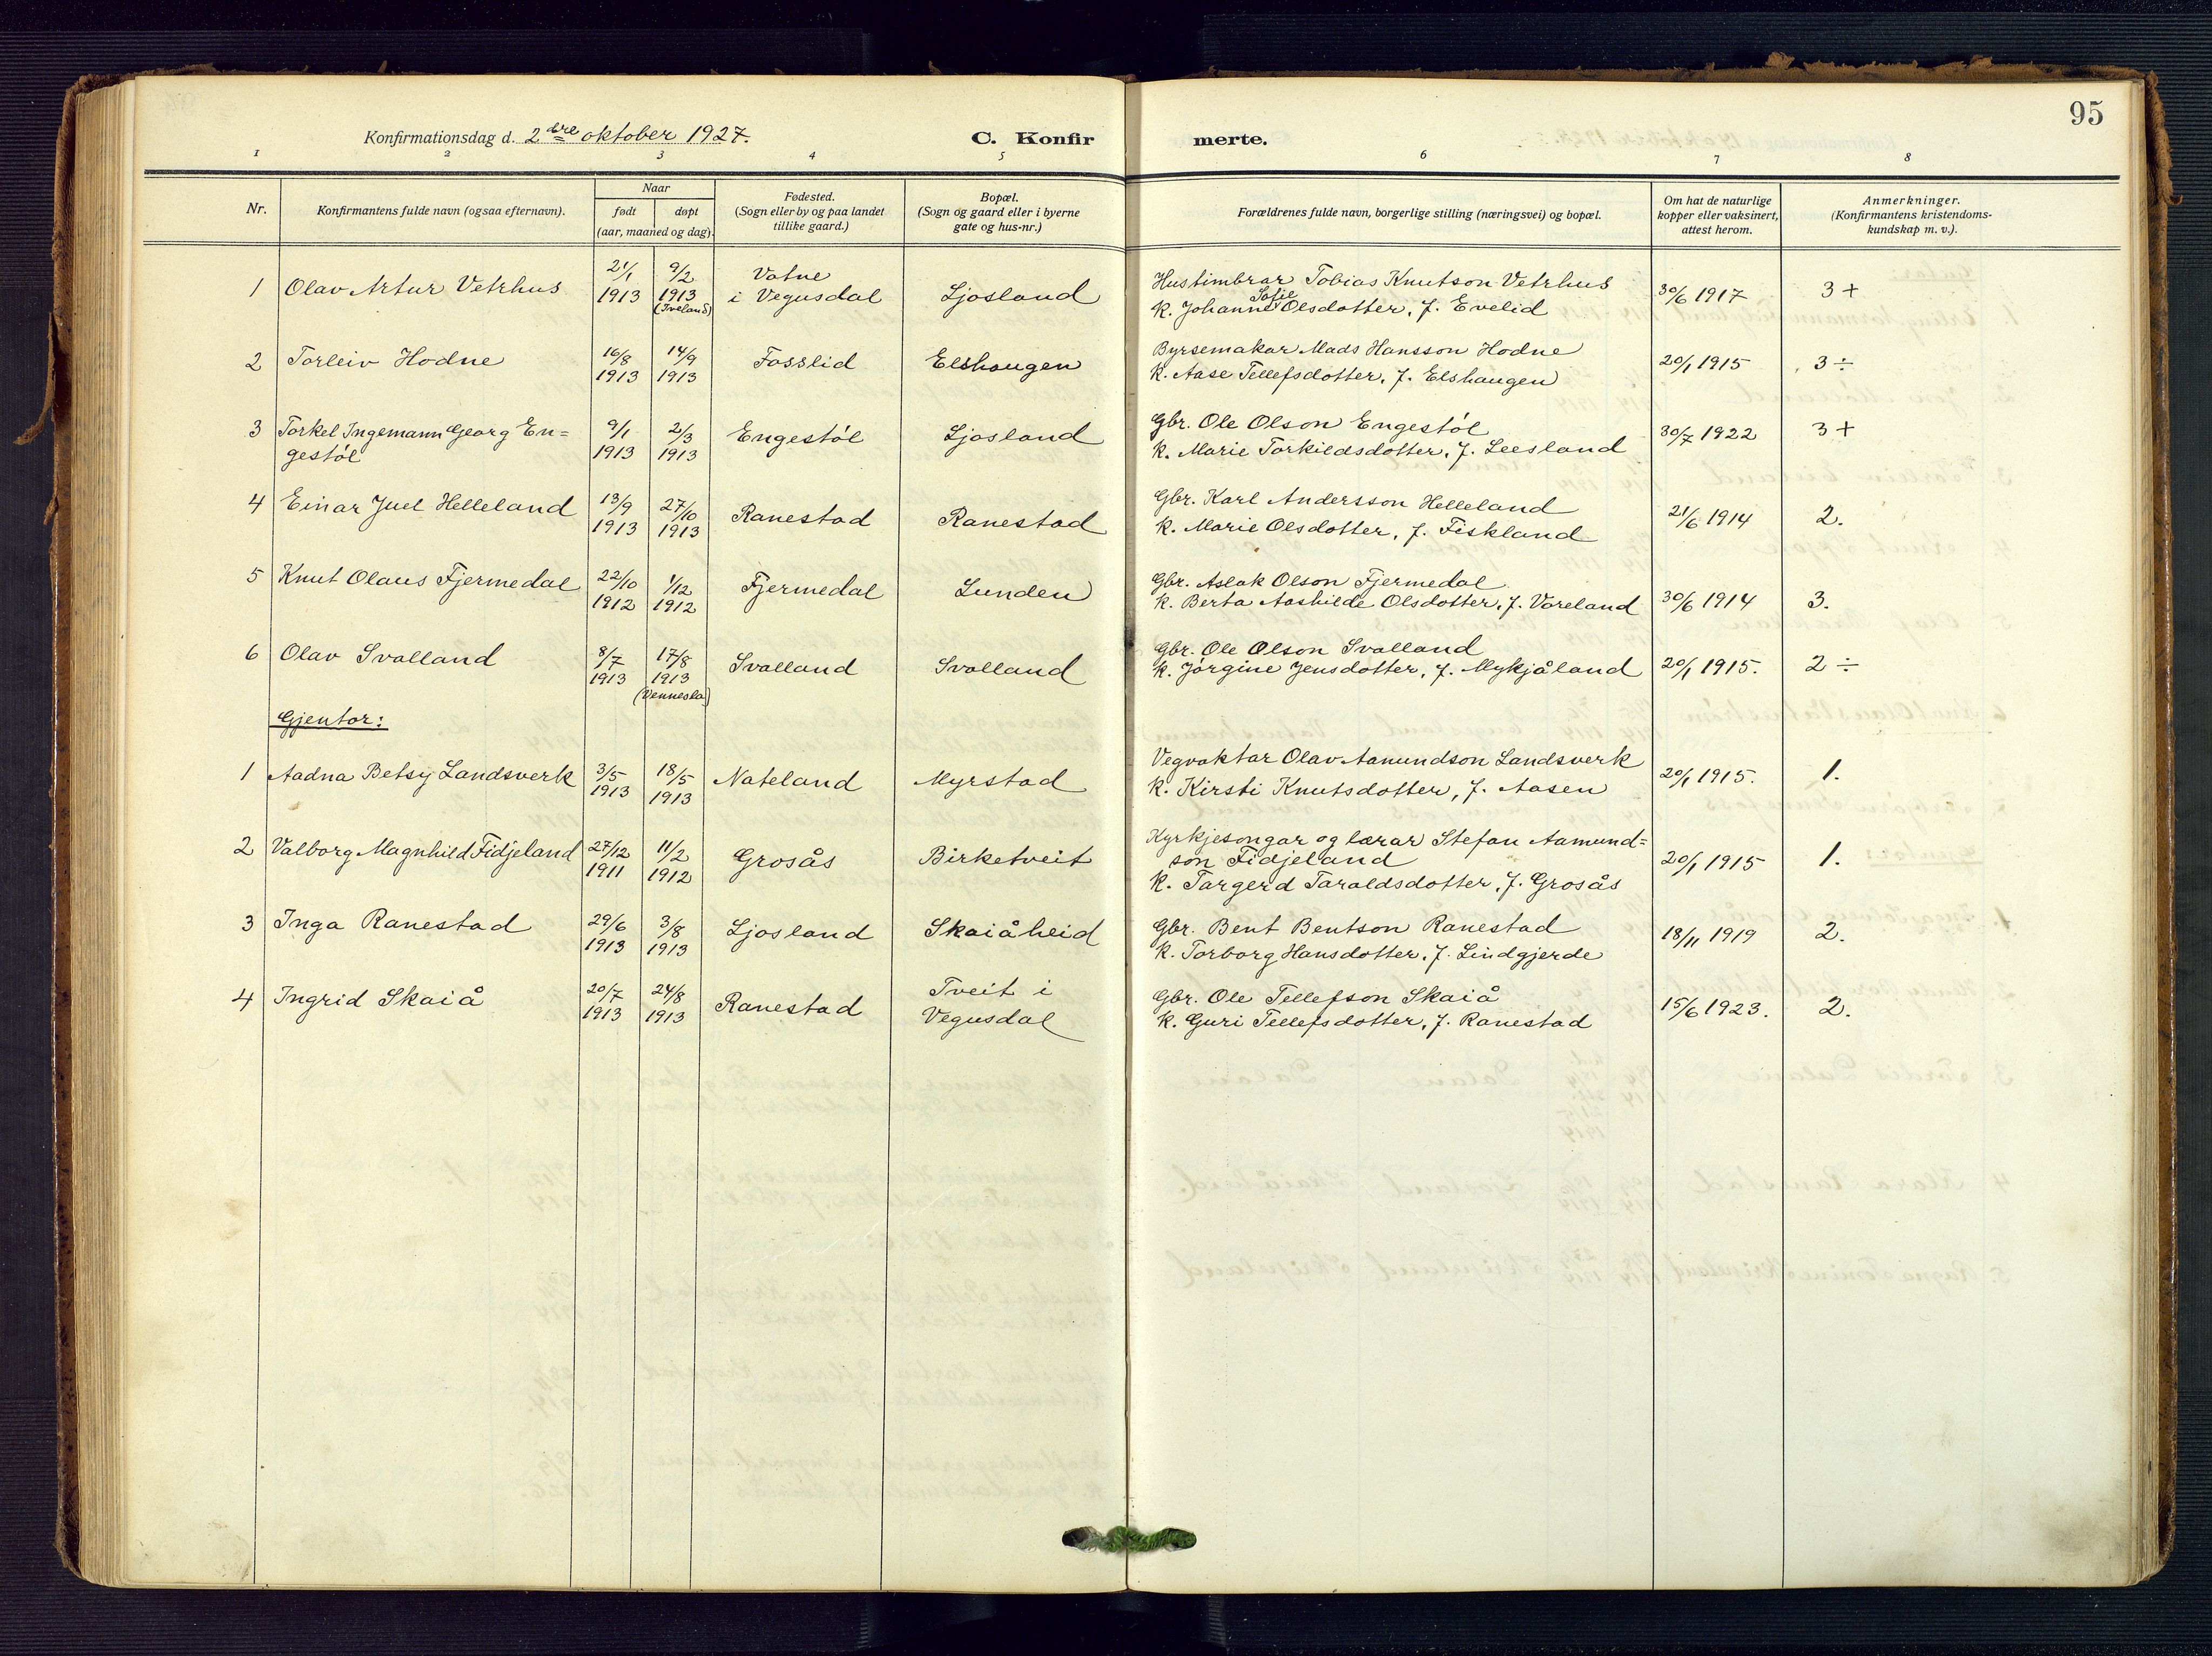 95
Konfirmationsdag d. 2dre oktober 1927. C. Konfirmerte.
1 2 3 4 5 6 7 8
Nr.
Konfirmantens fulde navn (ogsaa efternavn).
Naar
født døpt
(aar, maaned og dag).
Fødested.
(Sogn eller by og paa landet
tillike gaard.)
Bopæl.
(Sogn og gaard eller i byerne
gate og hus-nr.)
Forældrenes fulde navn, borgerlige stilling (næringsvei) og bopæl.
Om hat de naturlige
kopper eller vaksinert,
attest herom.
Anmerkninger.
(Konfirmantens kristendoms-
kundskap m. v.).
1 Olav Artur Vetrhus 21/1 1913 9/2 1913 (Iveland) Vatne i Vegusdal Ljosland
Hustimbrar Tobias Knutson Vetrhus
k. Johanne Sofie Olsdotter, f. Evelid
30/6 1917 3+
2 Torleiv Hodne 16/8 1913 14/9 1913 Fosslid Elshaugen
Byrsemakar Mads Hansson Hodne
k. Aase Tellefsdotter, f. Elshaugen
20/1 1915 3÷
3 Torkel Ingemann Georg En=
gestøl 9/1 1913 2/3 1913 Engestøl Ljosland
Gbr. Ole Olson Engestøl
k. Marie Torkildsdotter, f. Leesland
30/7 1922 3+
4 Einar Juel Helleland 13/9 1913 27/10 1913 Ranestad Ranestad
Gbr. Karl Andersson Helleland
k. Marie Olsdotter, f. Fiskland
21/6 1914 2.
5 Knut Olaus Fjermedal 22/10 1912 1/12 1912 Fjermedal Lunden
Gbr. Aslak Olson Fjermedal
k. Berta Aashilde Olsdotter, f. Vareland
30/6 1914 3.
6 Olav Svalland 8/7 1913 17/8 1913 (Vennesla) Svalland Svalland
Gbr. Ole Olson Svalland
k. Jørgine Jensdotter, f. Mykjåland
20/1 1915. 2÷
Gjentor:
1 Aadna Betsy Landsverk 3/5 1913 18/5 1913 Nateland Myrstad
Vegvaktar Olav Aanundson Landsverk
k. Kirsti Knutsdotter, f. Aasen
20/1 1915. 1.
2 Valborg Magnhild Fidjeland 27/12 1911 11/2 1912 Grosås Birketveit
Kyrkjesongar og lærar Stefan Aamund=
son Fidjeland
k. Targerd Taraldsdotter, f. Grosås
20/1 1915 1.
3 Inga Ranestad 29/6 1913 3/8 1913 Ljosland Skaiåheid
Gbr. Bent Bentson Ranestad
k. Torborg Hansdotter, f. Lindgjerde
18/11 1919 2.
4 Ingrid Skaiå 20/7 1913 24/8 1913 Ranestad Tveit i
Vegusdal
Gbr. Ole Tellefson Skaiå
k. Guri Tellefsdotter, f. Ranestad
15/6 1923. 2.